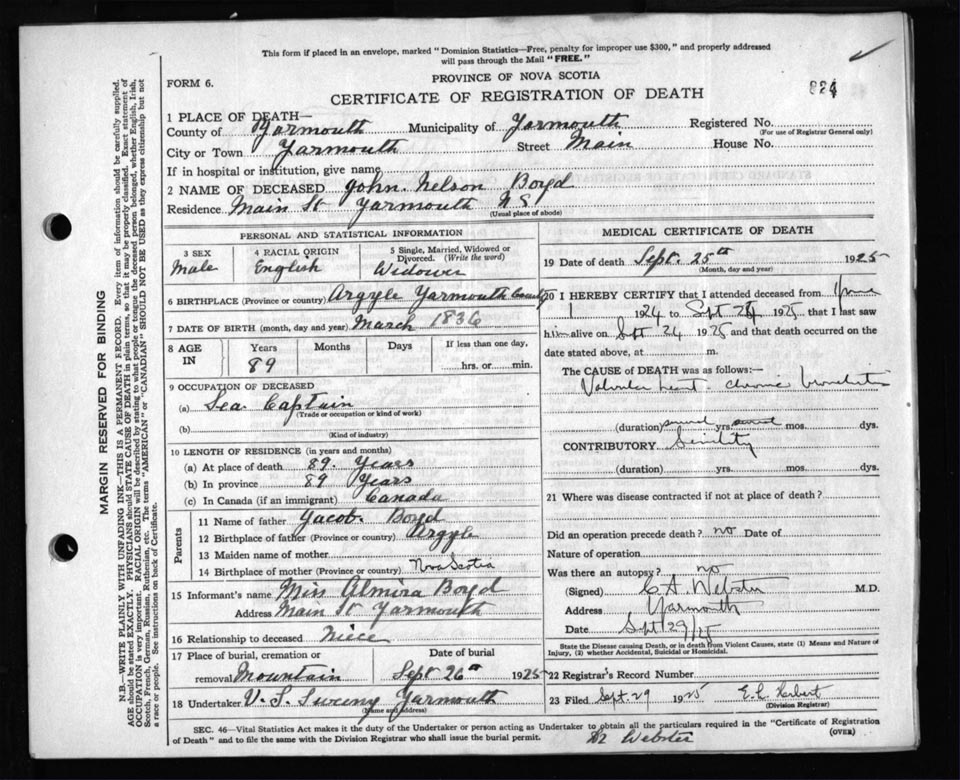 This form if placed in an envelope, marked "Dominion Statistics—Free, penalty for improper use $300," and properly addressed
will pass through the Mail "FREE."
FORM 6.
PROVINCE OF NOVA SCOTIA
CERTIFICATE OF REGISTRATION OF DEATH
884
1 PLACE OF DEATH—
County of Yarmouth Municipality of Yarmouth Registered No.
(For use of Registrar General only)
City or Town Yarmouth Street Main House No.
If in hospital or institution, give name
2 NAME OF DECEASED John Nelson Boyd
Residence Main St Yarmouth NS
(Usual place of abode)
PERSONAL AND STATISTICAL INFORMATION
3 SEX 4 RACIAL ORIGIN 5 Single, Married, Widowed or Divorced. (Write the word)
Male English Widower
6 BIRTHPLACE (Province or country) Argyle Yarmouth County
7 DATE OF BIRTH (month, day and year) March 1836
8 AGE IN Years Months Days If less than one day,
89 hrs. or min.
9 OCCUPATION OF DECEASED
(a) Sea Captain
(Trade or occupation or kind of work)
(b)
(Kind of industry)
10 LENGTH OF RESIDENCE (in years and months)
(a) At place of death 89. Years
(b) In province 89 Years
(c) In Canada (if an immigrant) Canada
Parents
11 Name of father Jacob. Boyd
12 Birthplace of father (Province or country) Argyle
13 Maiden name of mother
14 Birthplace of mother (Province or country) Nova Scotia
15 Informant's name Miss Almira Boyd
Address Main St Yarmouth
16 Relationship to deceased Niece
17 Place of burial, cremation or Date of burial
removal Mountain Sept 26th 1925
18 Undertaker V. S. Sweeny Yarmouth
(Name and address)
MEDICAL CERTIFICATE OF DEATH
19 Date of death Sept. 25th 1925
(Month, day and year)
20 I HEREBY CERTIFY that I attended deceased from June
1924 to Sept 1925 that I last saw
him alive on Spt 24 1925 and that death occurred on the
date stated above, at m.
The CAUSE of DEATH was as follows:—
Valvular heart chronic bronchitis
(duration) yrs. mos. dys.
CONTRIBUTORY Senility
(duration) yrs. mos. dys.
21 Where was disease contracted if not at place of death?
Did an operation precede death? no Date of
Nature of operation
Was there an autopsy? no
(Signed) C A Webster M.D.
Address Yarmouth
Date Spt 29/25
State the Disease causing Death, or in death from Violent Causes, state (1) Means and Nature of
Injury, (2) whether Accidental, Suicidal or Homicidal.
22 Registrar's Record Number
23 Filed Sept. 29 1925 E. C. Herbert
(Division Registrar)
SEC. 46—Vital Statistics Act makes it the duty of the Undertaker or person acting as Undertaker to obtain all the particulars required in the "Certificate of Registration
of Death" and to file the same with the Division Registrar who shall issue the burial permit. (OVER)
Dr Webster
MARGIN RESERVED FOR BINDING
N.B.—WRITE PLAINLY WITH UNFADING INK—THIS IS A PERMANENT RECORD. Every item of information should be carefully supplied.
AGE should be stated EXACTLY. PHYSICIANS should STATE CAUSE OF DEATH in plain terms, so that it may be properly classified. Exact statement of
OCCUPATION is very important. RACIAL ORIGIN will be described by stating to what people or tongue the deceased person belonged, whether English, Irish,
Scotch, French, German, Russian, Ruthenian, etc. The terms "AMERICAN" or "CANADIAN" SHOULD NOT BE USED as they express citizenship but not
a race or people. See instructions on back of Certificate.